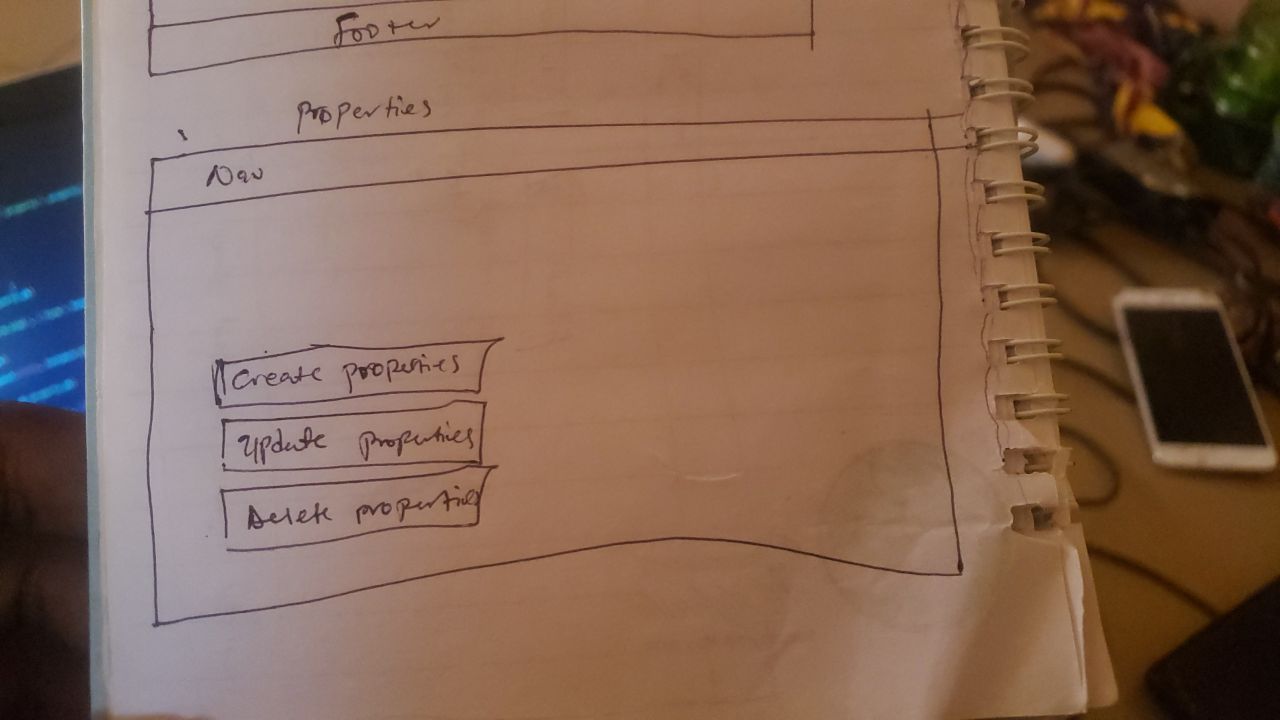 Footer
Properties
Nav
Create properties
Update properties
Delete properties